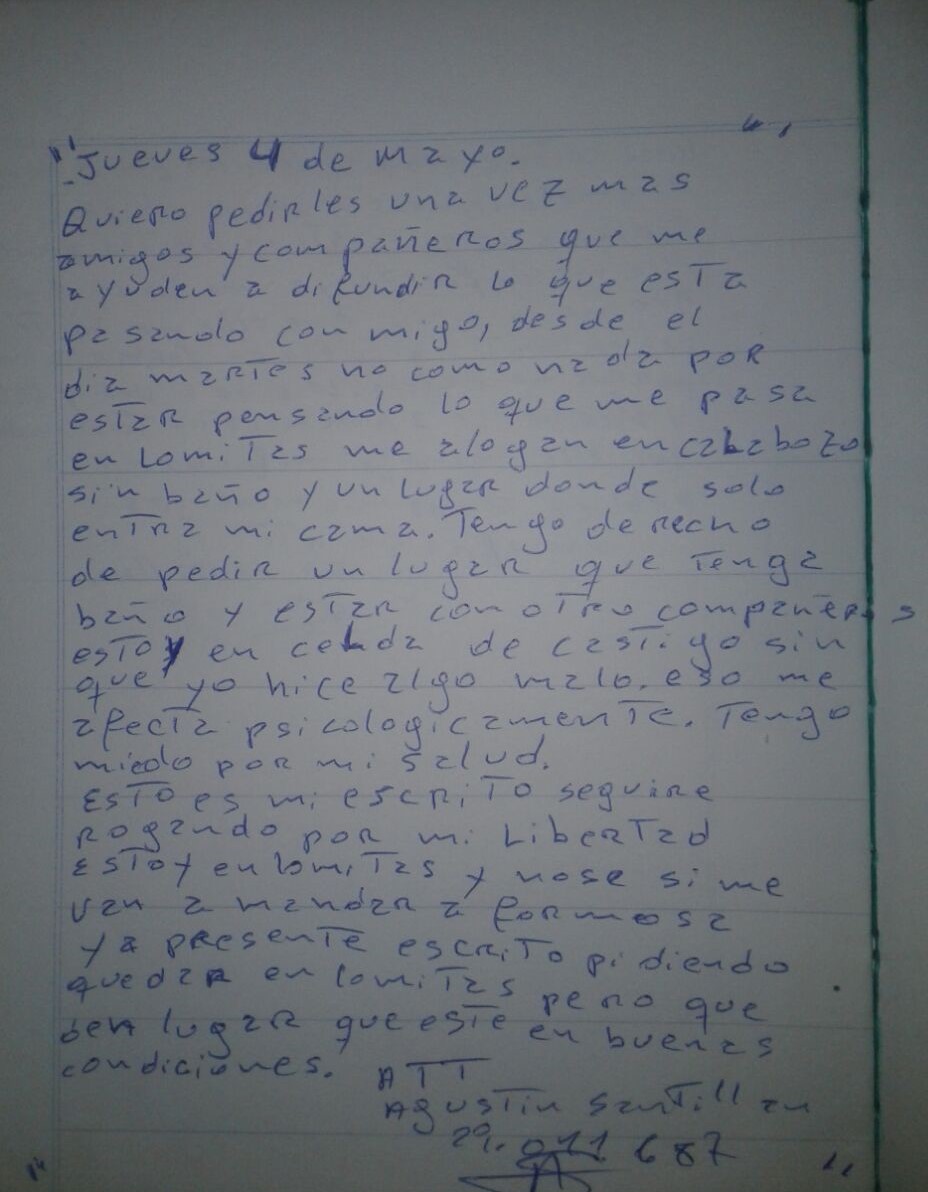 "Jueves 4 de mayo.
Quiero pedirles una vez mas
amigos y compañeros que me
ayuden a difundir lo que esta
pasando con migo, desde el
dia martes no como nada por
estar pensando lo que me pasa
en Lomitas me alogan en calabozo
sin baño y un lugar donde solo
entra mi cama. Tengo derecho
de pedir un lugar que tenga
baño y estar con otro compañeros
estoy en celda de castigo sin
que yo hice algo malo. eso me
afecta psicologicamente. Tengo
miedo por mi salud.
Esto es mi escrito seguire
rogando por mi Libertad
Estoy en lomitas y nose si me
van a mandar a formosa
ya presente escrito pidiendo
quedar en lomitas pero que
den lugar que este en buenas
condiciones. ATT
Agustin Santillan
29.011.687